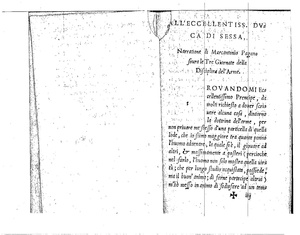 ALL'ECCELLENTISS. DV=
CA DI SESSA.
Narratione di Marcantonio Pagano
soura le Tre Giornate della
Disciplina dell'Arme.
ROVANDOMI Ec
cellentissimo Prencipe, da
molti richiesto a dover scri
vere alcune cose, d'intorno
la dottrina dell'arme, per
non privare me stesso d'una particella di quella
lode, che io stimo maggiore tra quante ponno
l'huomo adornare, la quale è, il giovare ad
altri, & massimamente a posteri; percioche
nel farlo, l'huomo non solo mostra quella virtù
che per lungo studio acquistata, possiede,
ma il buon'animo; di farne partecipe altrui
messo in animo di ad un
iij